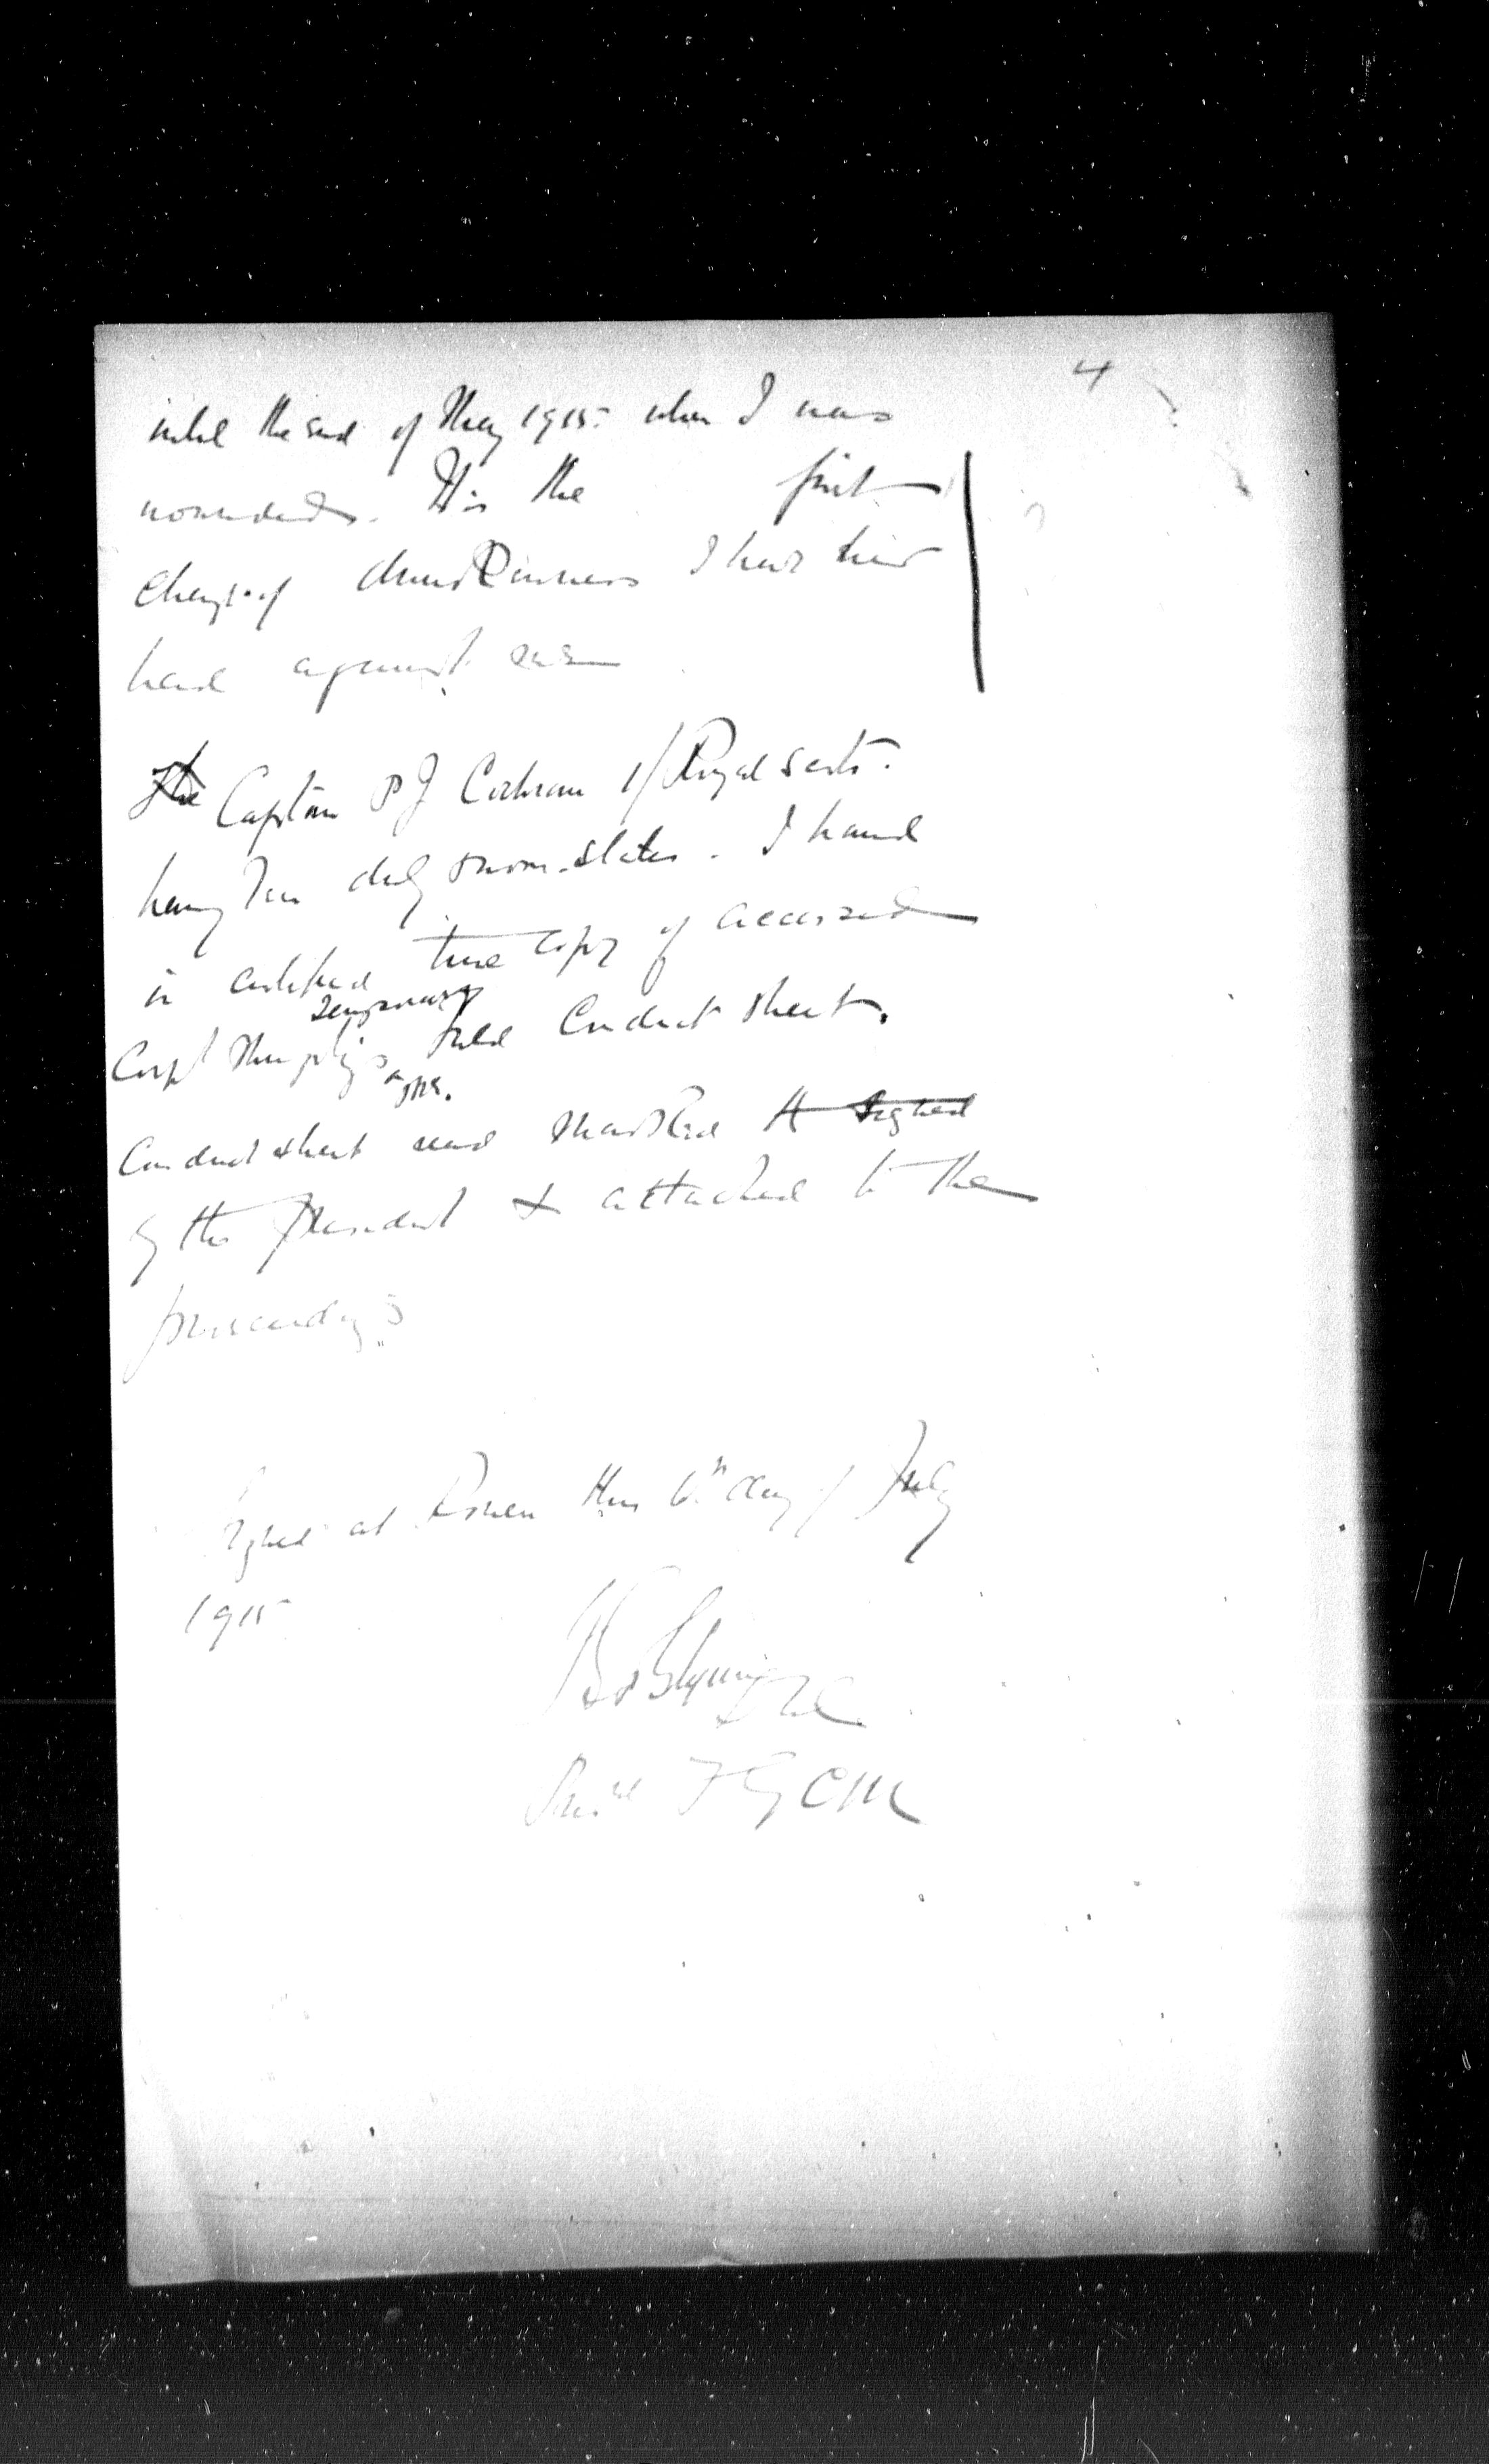 4
until the end of May 1915 when I was
wounded. It is the first
charge of drunkenness I have ever
had against me
The Captain P J Cochran 1/Royal Scots.
having been duly sworn states. I hand
in certified true copy of accused
temporary
Corpl Murphy's field Conduct sheet.
Conduct sheet read marked H signed
by the President & attached to the
proceedings
Signed at Rouen this 6th day of July
1915
Col
Presdt F G C M